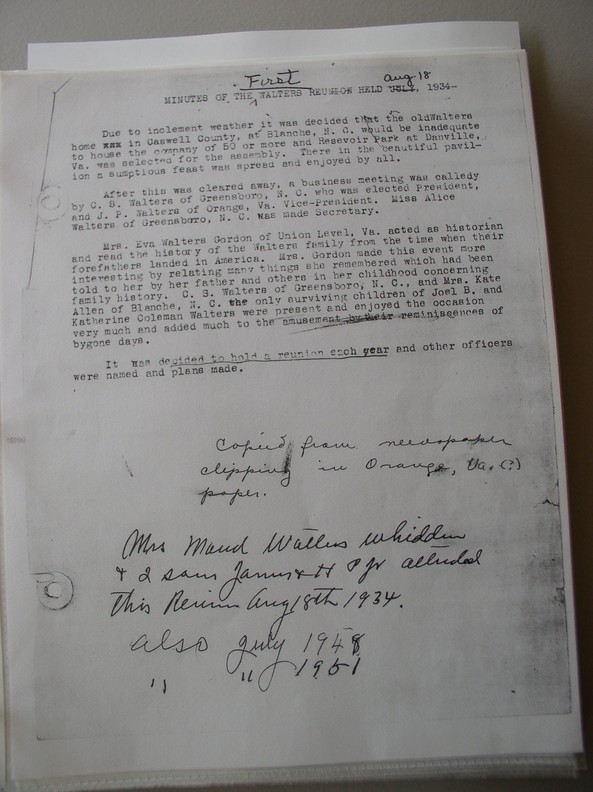 First
Aug 18
MINUTES OF THE WALTERS REUNION HELD JULY, 1934-
Due to inclement weather it was decided that the oldWalters
home xxx in Caswell County, at Blanche, N. C. would be inadequate
to house the company of 50 or more and Resevoir Park at Danville,
Va. was selected for the assembly. There in the beautiful pavil-
ion a sumptious feast was spread and enjoyed by all.
After this was cleared away, a business meeting was calledy
by C. S. Walters of Greensboro, N. C. who was elected President,
and J. P. Walters of Orange, Va. Vice-President. Miss Alice
Walters of Greensboro, N. C. was made Secretary.
Mrs. Eva Walters Gordon of Union Level, Va. acted as historian
and read the history of the Walters family from the time when their
forefathers landed in America. Mrs. Gordon made this event more
interesting by relating many things she remembered which had been
told to her by her father and others in her childhood concerning
family history. C. S. Walters of Greensboro, N. C., and Mrs. Kate
Allen of Blanche, N. C. the only surviving children of Joel B. and
Katherine Coleman Walters were present and enjoyed the occasion
very much and added much to the amusement by their reminiscences of
bygone days.
It was decided to hold a reunion each year and other officers
were named and plans made.
Copied from newspaper
clipping in Orange, Va. (?)
paper.
Mrs Maud Walters Whidden
& 2 sons James & H P Jr attended
this Reunion Aug 18th 1934.
also July 1948
" " 1951